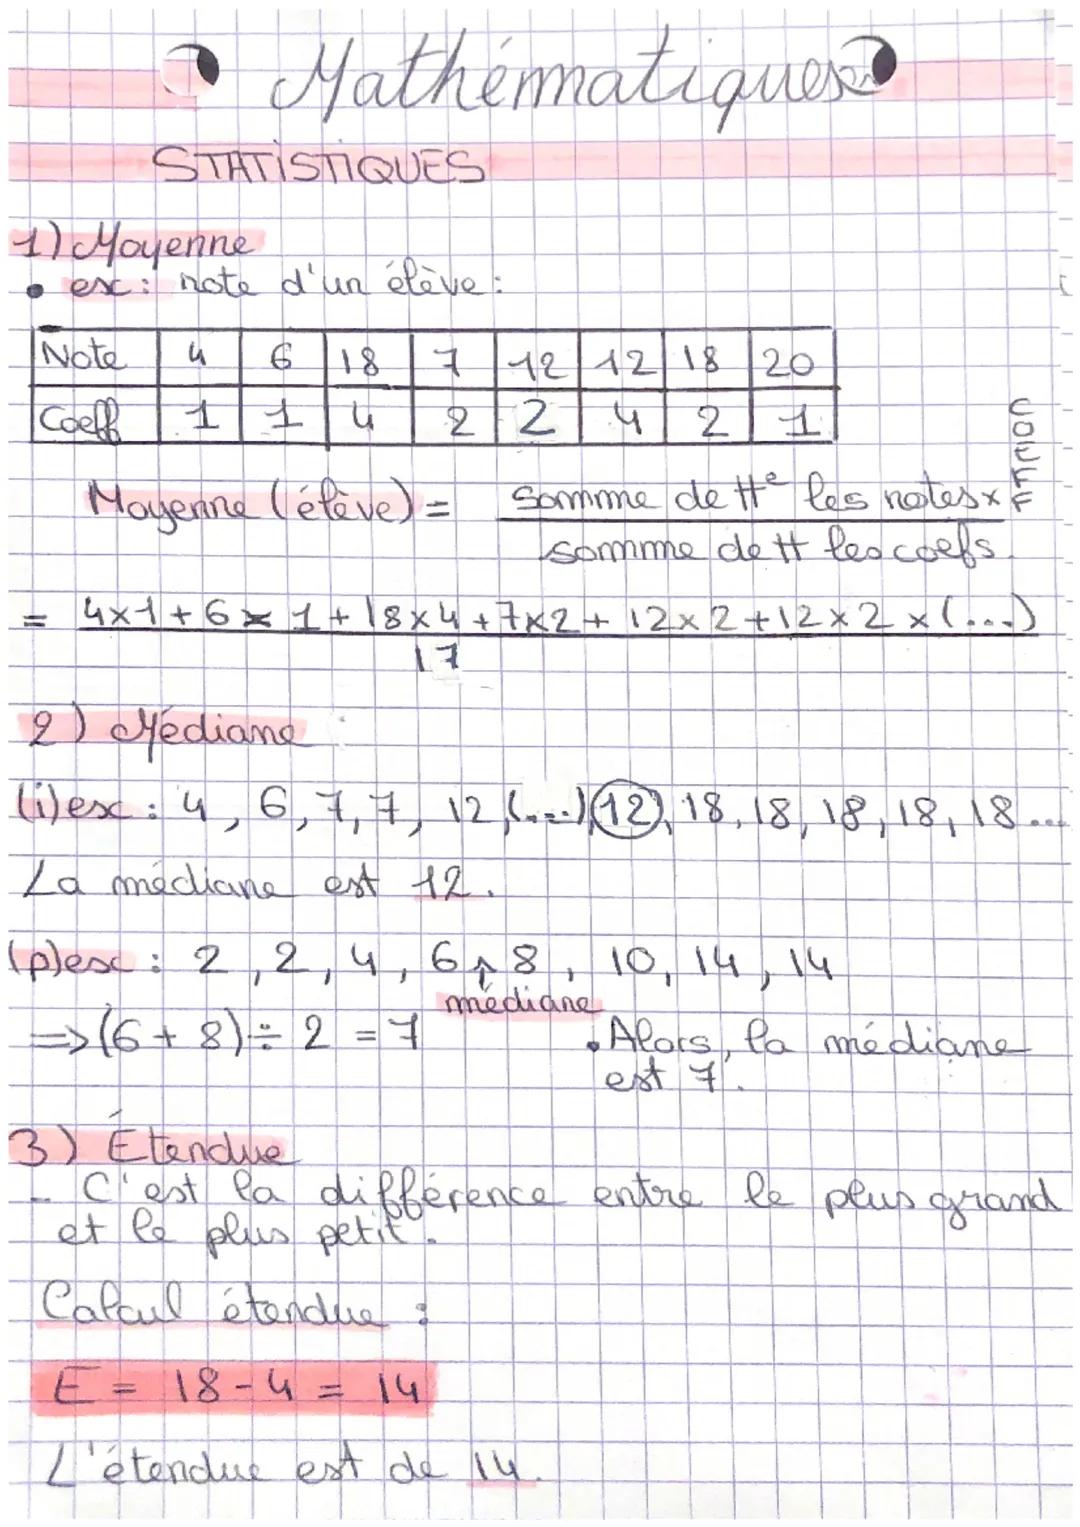 Mathématiques
STATISTIQUES
1) Moyenne
• ex: note d'un élève:
Note 4 6 18 7 12 12 18 20
Coeff 1 1 4 2 2 4 2 1
Moyenne (élève) = somme de tte les notes x COEFF
somme de tt les coefs.
= 4x1+6x1+18x4+7x2+12x2+12x2x(...)
17
2) Médiane :
(i) ex: 4, 6, 7, 7, 12, (...), 12, 18, 18, 18, 18, 18...
La médiane est 12.
(p) ex: 2, 2, 4, 6 ↑ 8, 10, 14, 14
médiane
=> (6+8)÷2 = 7 • Alors, la médiane
est 7.
3) Étendue
- C'est la différence entre le plus grand
et le plus petit.
Calcul étendue :
E = 18-4 = 14
L'étendue est de 14.